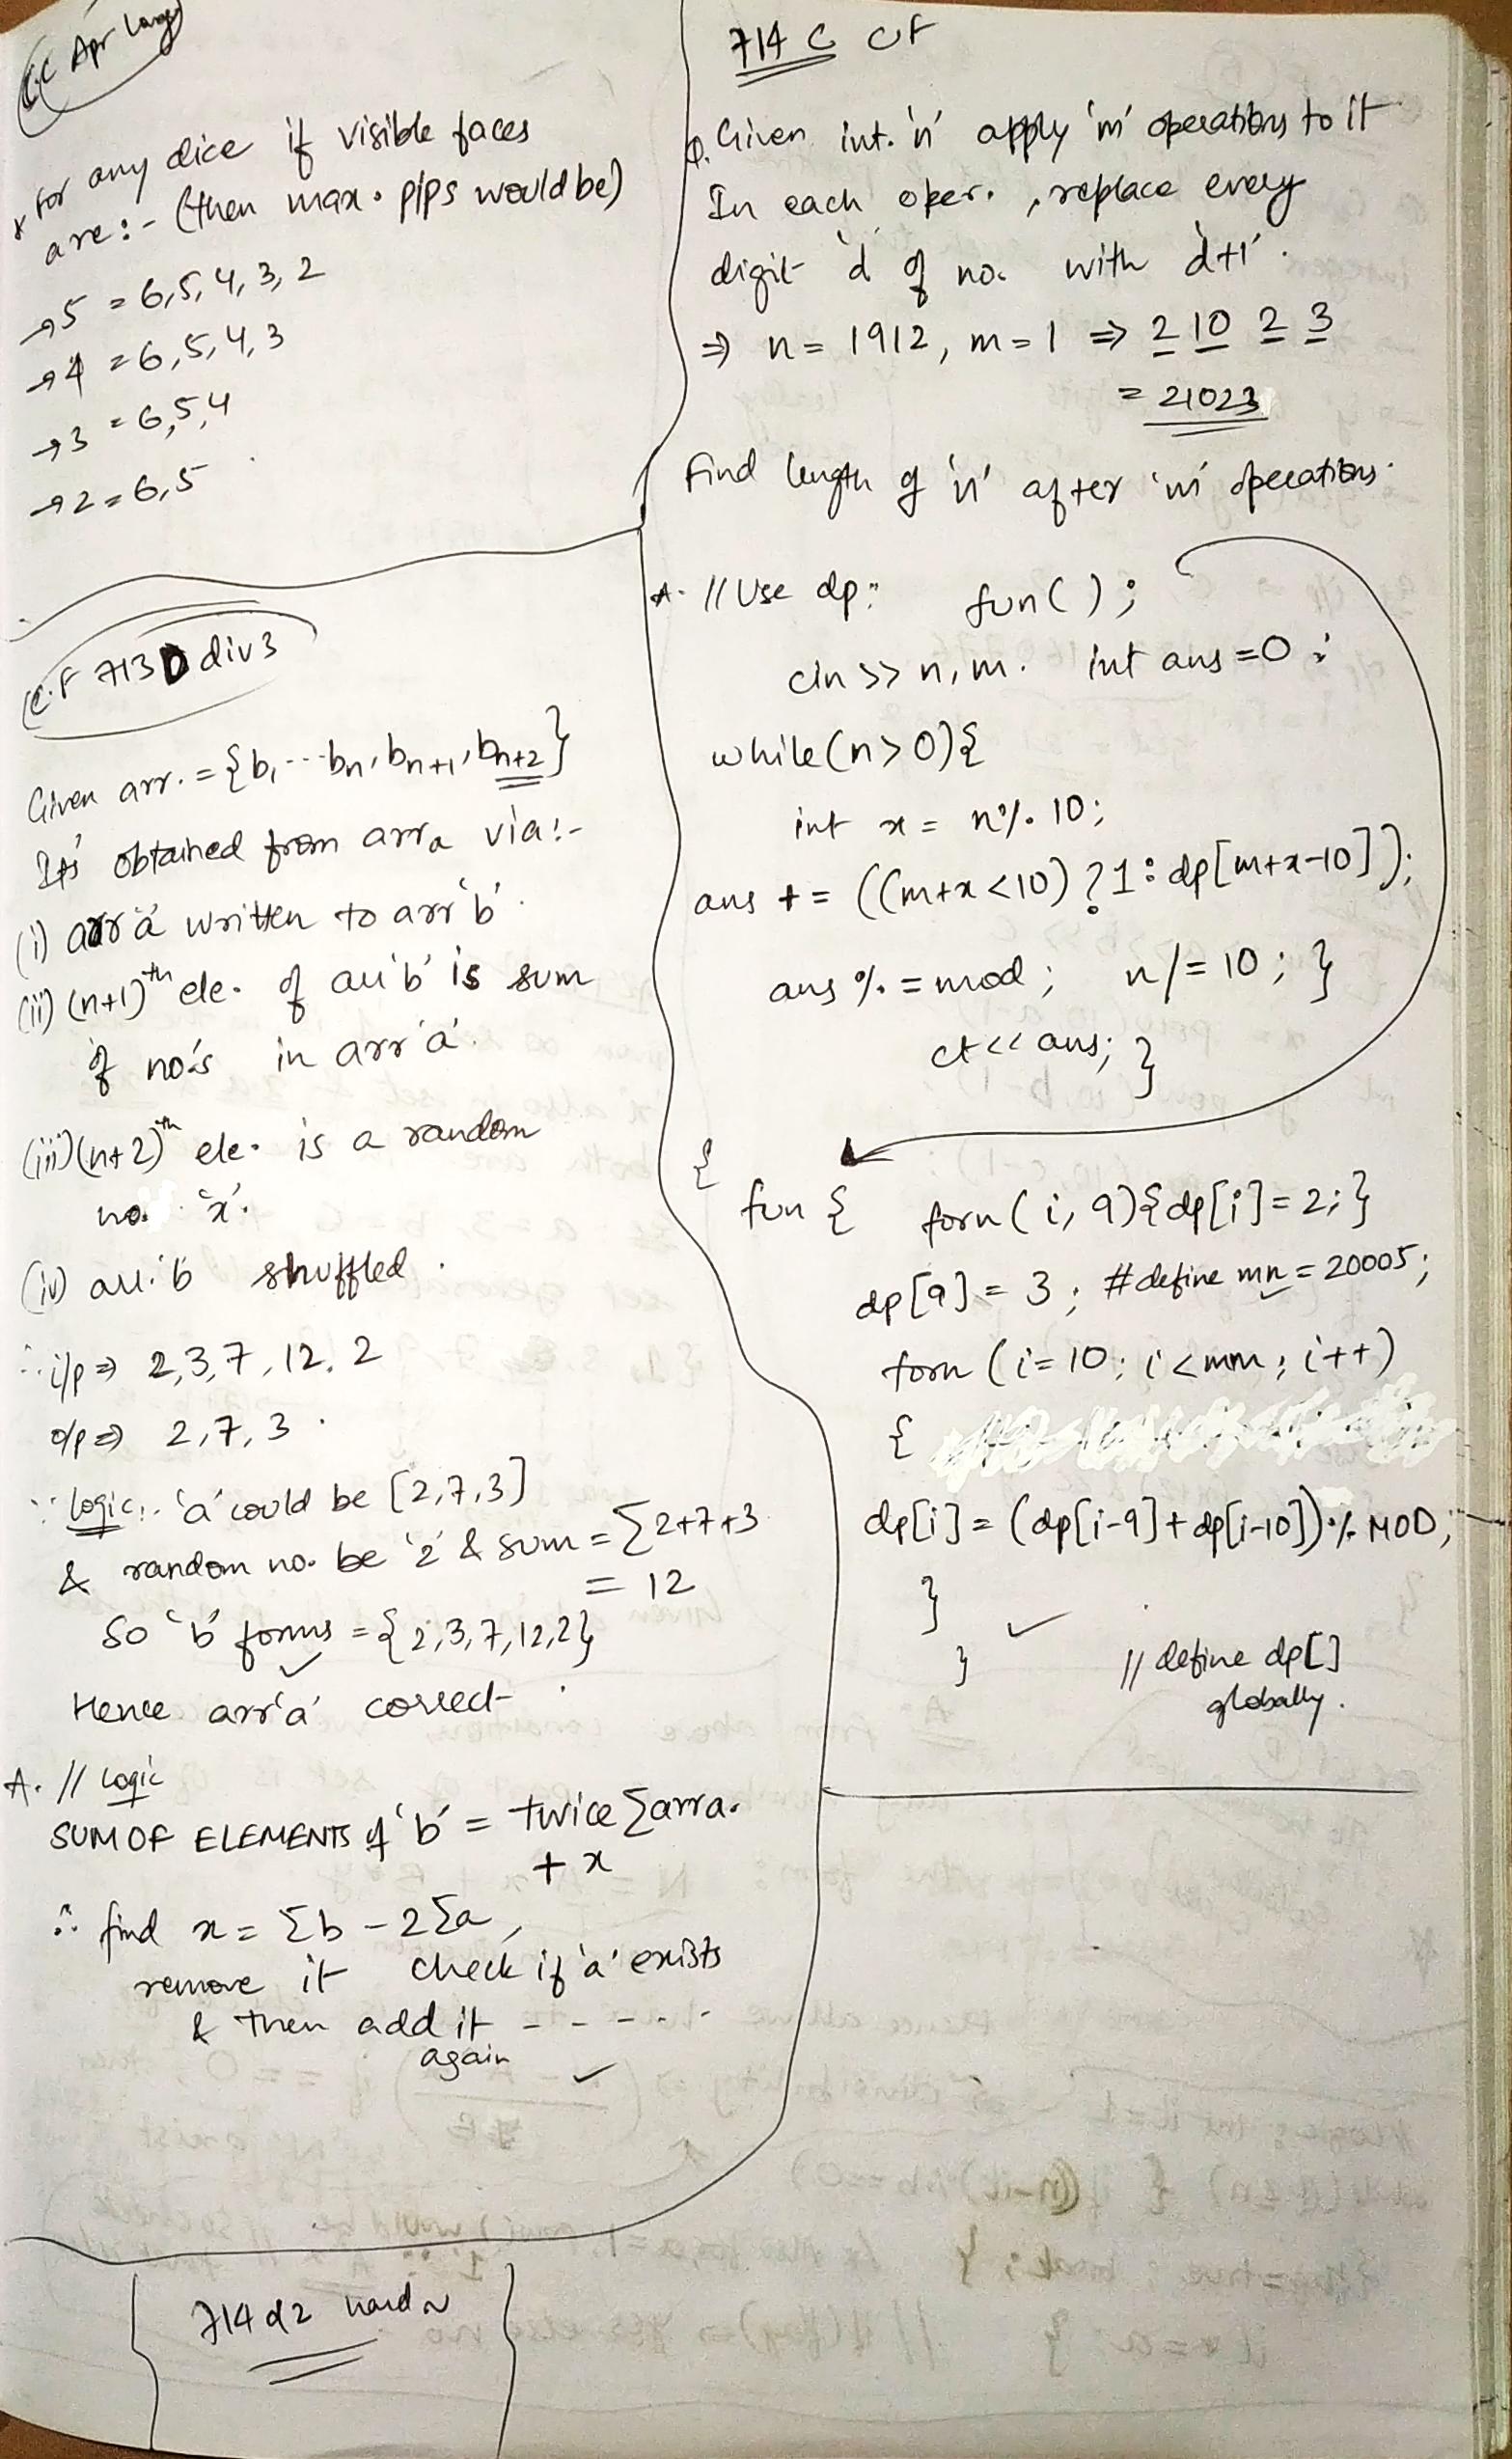 CC Apr Long
* for any dice if visible faces
are :- (then max. pips would be)
→ 5 = 6,5,4,3,2
→ 4 = 6,5,4,3
→ 3 = 6,5,4
→ 2 = 6,5
C.F 713 D div 3
Given arr. = {b, --- bn, bn+1, bn+2}
Its' obtained from arr a via:-
(i) arr 'a' written to arr 'b'.
(ii) (n+1)th ele. of arr 'b' is sum
of no's in arr 'a'.
(iii) (n+2)th ele. is a random
no. 'x'.
(iv) arr. 'b' shuffled.
∴ i/p ⇒ 2,3,7,12,2
o/p ⇒ 2,7,3.
∵ Logic:. 'a' could be [2,7,3]
& random no. be '2' & sum = Σ2+7+3
= 12
So 'b' forms = {2,3,7,12,2}
✓
Hence arr 'a' correct.
A. // Logic
SUM OF ELEMENTS of 'b' = twice Σarra.
+ x
∴ find x = Σb - 2Σa,
remove it check if 'a' exists
& then add it - - - - -
again ✓
714 d2 hard
714 C CF
Q. Given int. 'n' apply 'm' operations to it
In each oper. , replace every
digit 'd' of no. with 'd+1'.
⇒ n = 1912, m = 1 ⇒ 2 10 2 3
= 21023
Find length of 'n' after 'm' operations.
A. // Use dp: fun( );
cin >> n, m. int ans = 0;
while (n > 0) {
int x = n % 10;
ans += ((m+x < 10) ? 1 : dp[m+x-10]);
ans % = mod; n /= 10; }
ct << ans; }
{
fun { forn ( i, 9) { dp[i] = 2; }
dp[9] = 3; #define mn = 20005;
forn ( i = 10; i < mn; i++)
{
dp[i] = (dp[i-9] + dp[i-10]) % MOD;
}
} ✓
// define dp[]
globally.